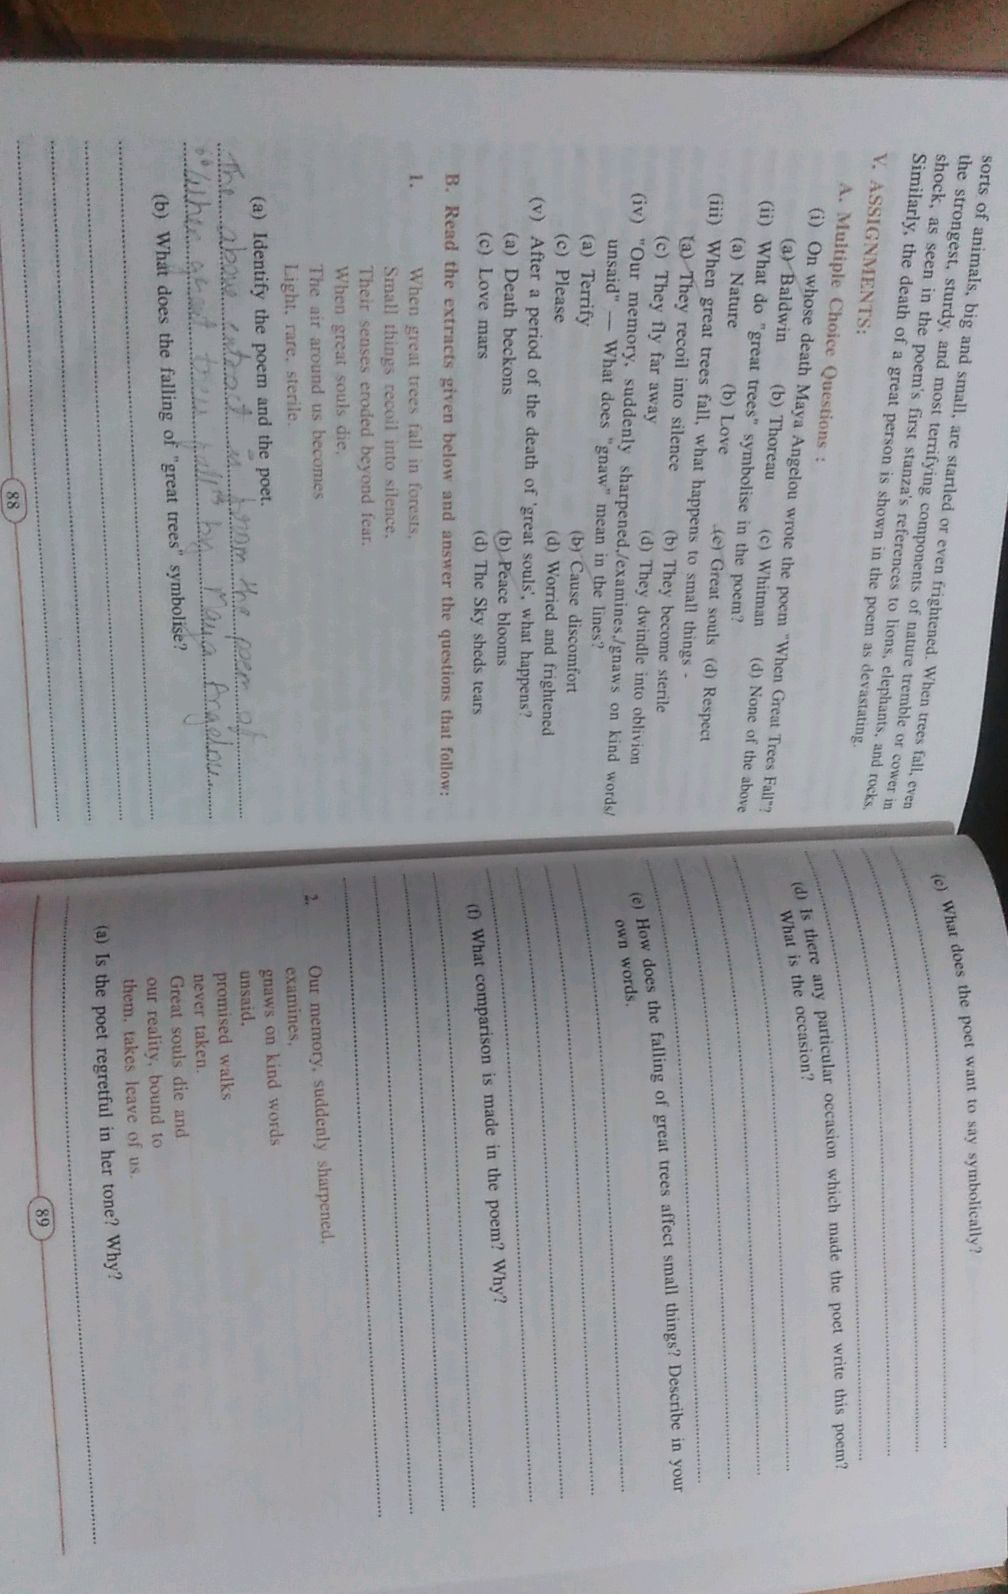 sorts of animals, big and small, are startled or even frightened. When trees fall, even
the strongest, sturdy, and most terrifying components of nature tremble or cower in
shock, as seen in the poem's first stanza's references to lions, elephants, and rocks.
Similarly, the death of a great person is shown in the poem as devastating.
V. ASSIGNMENTS:
A. Multiple Choice Questions :
(i) On whose death Maya Angelou wrote the poem "When Great Trees Fall"?
(a) Baldwin (b) Thoreau (c) Whitman (d) None of the above
(ii) What do "great trees" symbolise in the poem?
(a) Nature (b) Love (c) Great souls (d) Respect
(iii) When great trees fall, what happens to small things -
(a) They recoil into silence (b) They become sterile
(c) They fly far away (d) They dwindle into oblivion
(iv) "Our memory, suddenly sharpened,/examines,/gnaws on kind words/
unsaid" — What does "gnaw" mean in the lines?
(a) Terrify (b) Cause discomfort
(c) Please (d) Worried and frightened
(v) After a period of the death of 'great souls', what happens?
(a) Death beckons (b) Peace blooms
(c) Love mars (d) The Sky sheds tears
B. Read the extracts given below and answer the questions that follow:
1. When great trees fall in forests,
Small things recoil into silence,
Their senses eroded beyond fear.
When great souls die,
The air around us becomes
Light, rare, sterile.
(a) Identify the poem and the poet.
The above extract is from the poem of
"When great trees fall" by Maya Angelou.
(b) What does the falling of "great trees" symbolise?
88
(c) What does the poet want to say symbolically?
(d) Is there any particular occasion which made the poet write this poem?
What is the occasion?
(e) How does the falling of great trees affect small things? Describe in your
own words.
(f) What comparison is made in the poem? Why?
2. Our memory, suddenly sharpened,
examines,
gnaws on kind words
unsaid,
promised walks
never taken.
Great souls die and
our reality, bound to
them, takes leave of us.
(a) Is the poet regretful in her tone? Why?
89